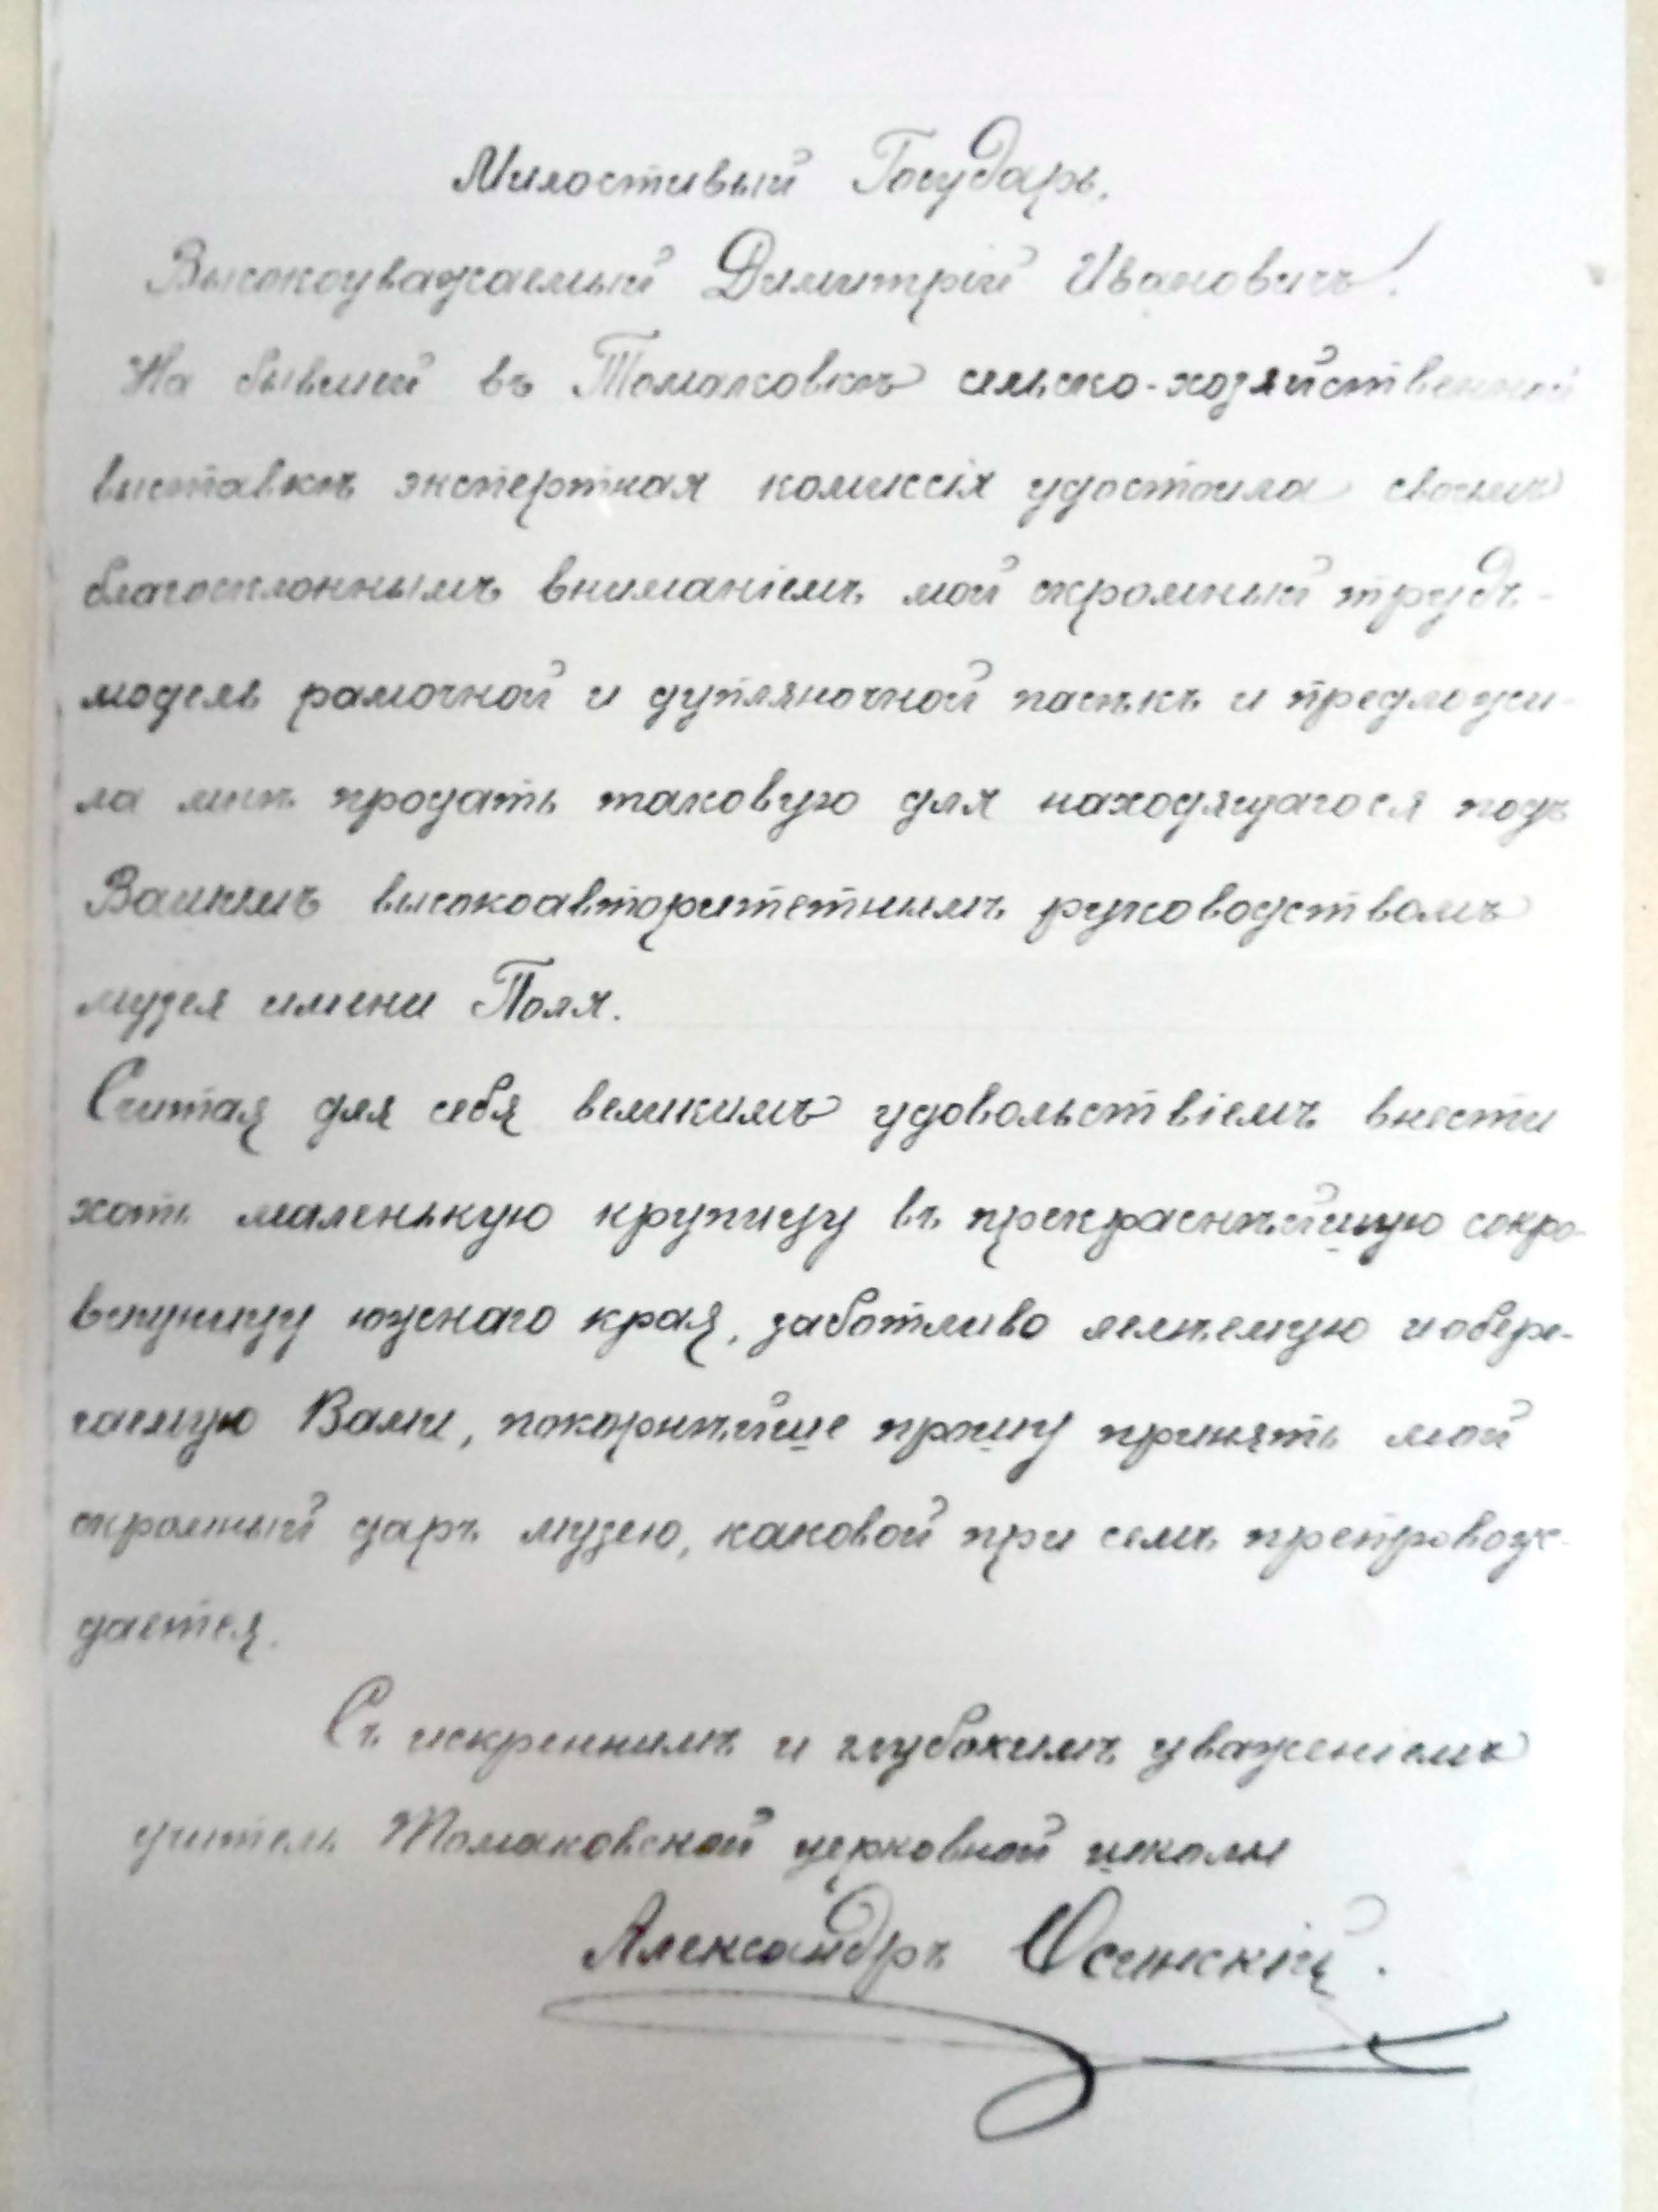 Милостивый Государь.
Высокоуважаемый Димитрій Ивановичъ!
На бывшей въ Томаковкѣ сельско-хозяйственной
выставкѣ экспертная комиссія удостоила своимъ
благосклоннымъ вниманіемъ мой скромный трудъ-
модель рамочной и дупляночной пасѣкъ и предложи-
ла мнѣ продать таковую для находящагося подъ
Вашимъ высокоавторитетнымъ руководствомъ
музея имени Поля.
Считая для себя великимъ удовольствіемъ внести
хоть маленькую крупицу въ прекраснѣйшую сокро-
вищницу южнаго края, заботливо лелѣемую и обере-
гаемую Вами, покорнѣйше прошу принять мой
скромный даръ музею, каковой при семъ препровож-
дается.
Съ искреннимъ и глубокимъ уваженіемъ
учитель Томаковской церковной школы
Александръ Осинскій.